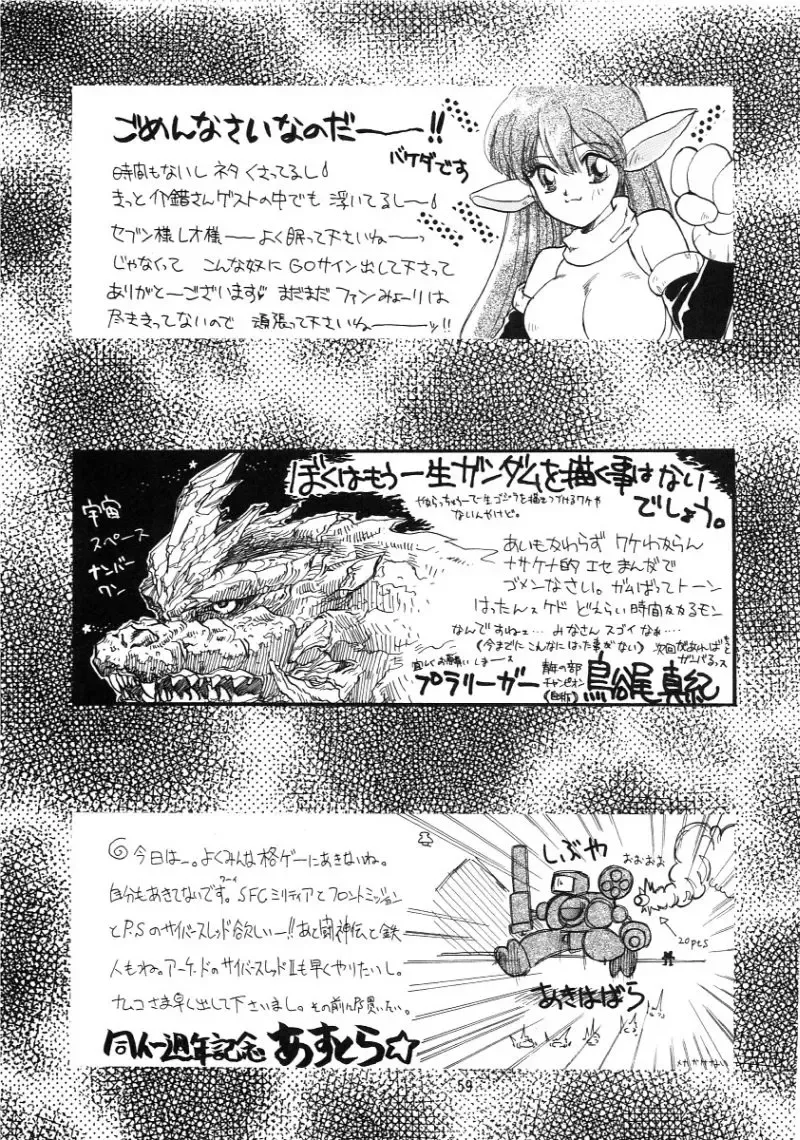 ごめんなさいなのだ――!!
バケダです
時間もないし ネタ くさってるし♪
きっと 介錯さんゲストの中でも 浮いてるし〜♪
セブン様 レオ様―― よく 眠って下さいね――っ
じゃなくって こんな奴に GOサイン出して下さって
ありがと――ございます♡ まだまだ ファンみょーりは
尽ききってないので 頑張って下さいね――ッ!!
ぼくはもう一生ガンダムを描く事はない
でしょう。
ないんやけど。
宇宙
スペース
ナンバー
ワン
あいもかわらず ワケわからん
ナサケナ的 エセ まんがで
ゴメンなさい。ガんばってトーン
はったんスケド どえらい時間かかるモン
なんですねェ… みなさん スゴイ なぁ…
(今までこんなにはった事がない)
プラリーガー
チャンピオン
鳥谷尾 真紀
今日はー。よくみんな格ゲーにあきないね。
自分もあきてないです。SFCミリティアとフロントミッション
とP.Sのサイバースレッド欲しいー!!あと闘神伝と鉄
人もね。アーケードのサイバースレッドⅡも早くやりたいし。
ナムコさま早く出して下さいまし。その前にPS買いたい。
同人一週年記念 あすとら☆
しぶや
おおおお
20pcs
あきはばら
59